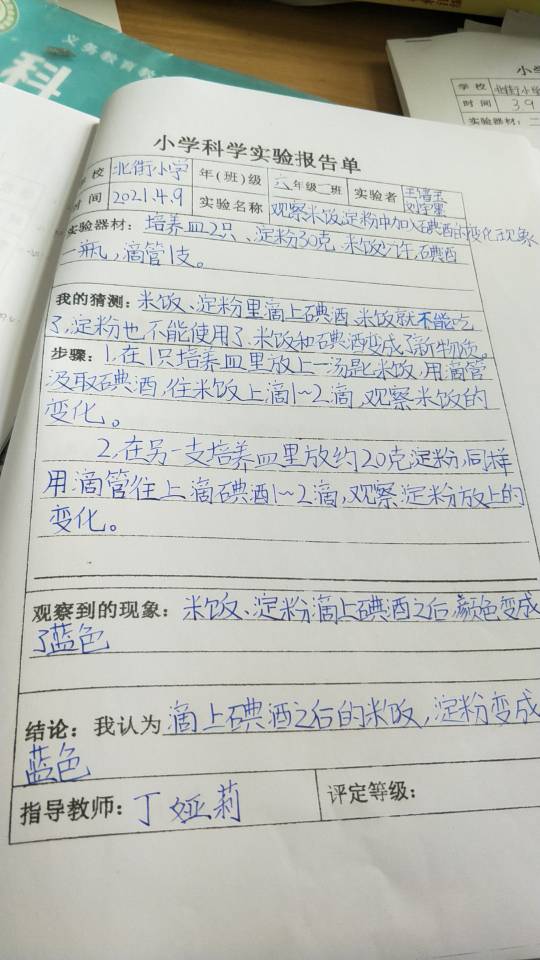 义务教育教
科
小学
学 校 北街小学
时 间 3 9
实验器材：二
小学科学实验报告单
校 北街小学 年(班)级 六年级二班 实验者
时 间 2021.4.9 实验名称 观察米饭,淀粉中加入碘酒的变化现象
实验器材：培养皿2只、淀粉30克 米饭少许,碘酒
一瓶,滴管1支。
我的猜测：米饭、淀粉里滴上碘酒 米饭就不能吃
了,淀粉也不能使用了.米饭和碘酒变成了新物质。
步骤：1.在1只培养皿里放上一汤匙米饭,用滴管
汲取碘酒,往米饭上滴1~2滴,观察米饭的
变化。
2.在另一支培养皿里放约20克淀粉,同样
用滴管往上滴碘酒1~2滴,观察淀粉放上的
变化。
观察到的现象：米饭、淀粉滴上碘酒之后,颜色变成
了蓝色
结论：我认为滴上碘酒之后的米饭,淀粉变成
蓝色
指导教师：丁娅莉 评定等级：